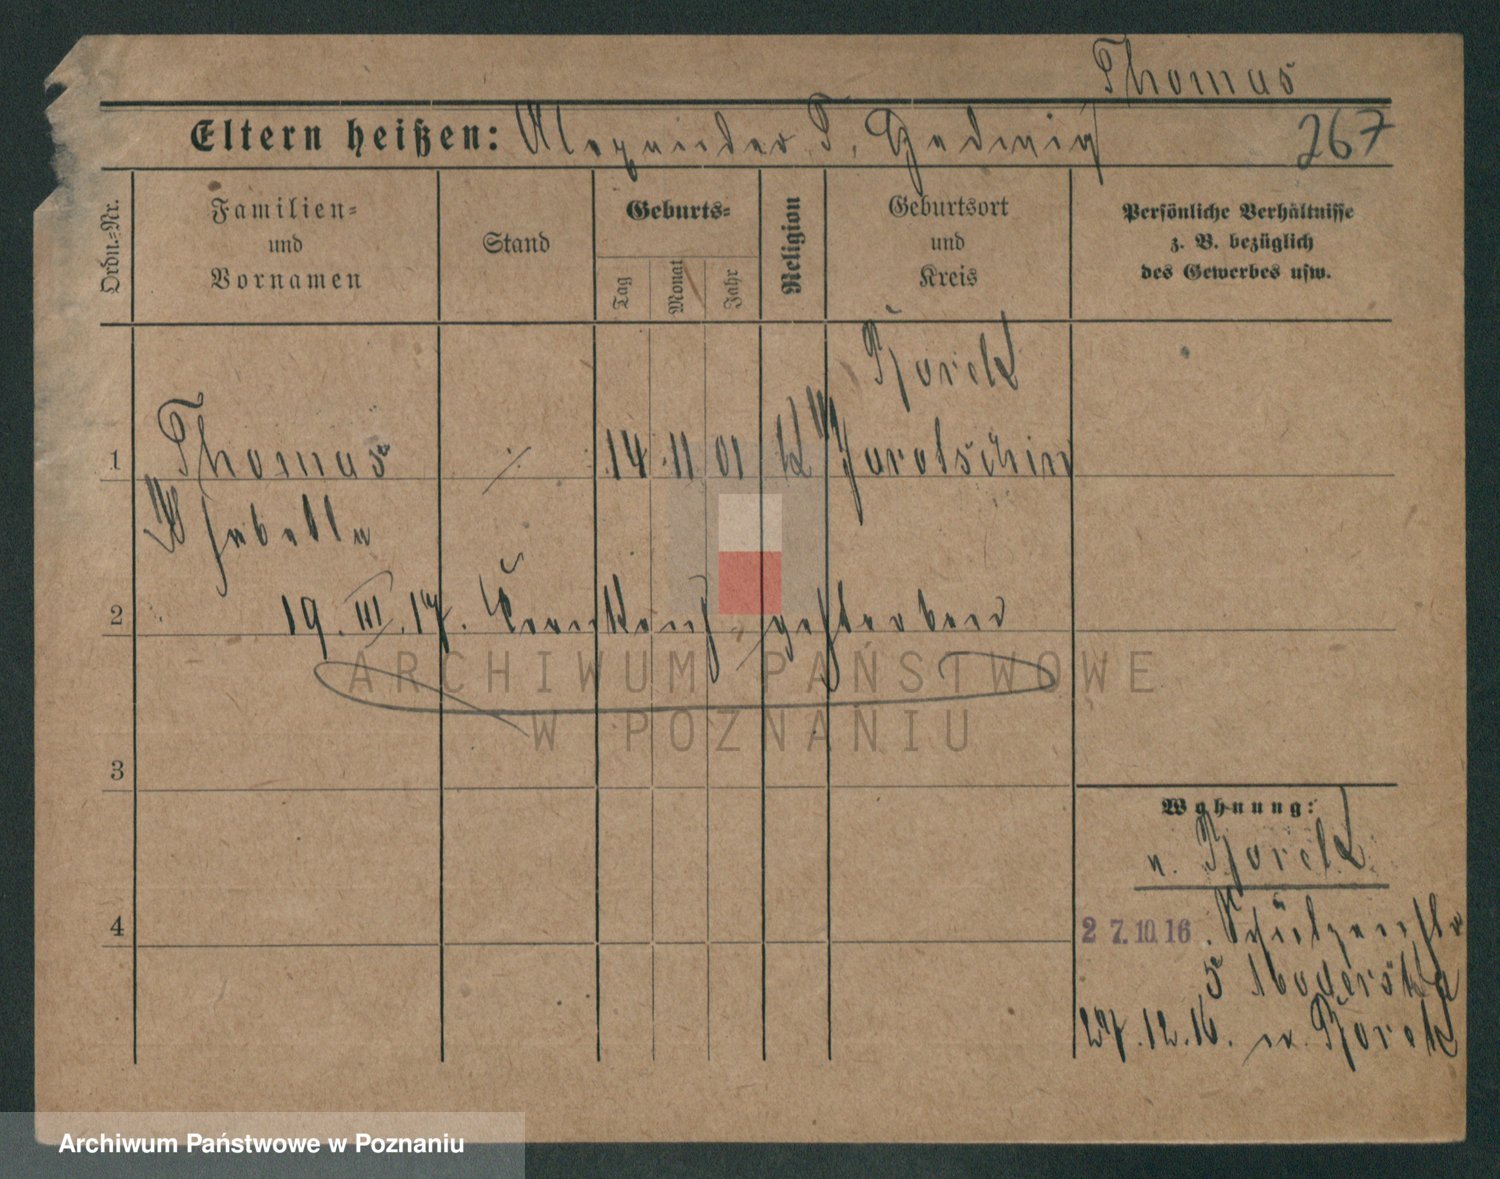 Thomas
Eltern heißen: Alexander T. Hedwig 267
Ordn.=Nr.
Familien=
und
Vornamen
Stand
Geburts=
Tag
Monat
Jahr
Religion
Geburtsort
und
Kreis
Persönliche Verhältnisse
z. B. bezüglich
des Gewerbes usw.
1
Thomas
Isabella
14 11 01 K
Borek
Jarotschin
2
19. III. 17. gestorben
3
4
Wohnung:
n. Borek
27.10.16. Schützenstr
5
27.12.16. n. Borek
ARCHIWUM PAŃSTWOWE
W POZNANIU
Archiwum Państwowe w Poznaniu